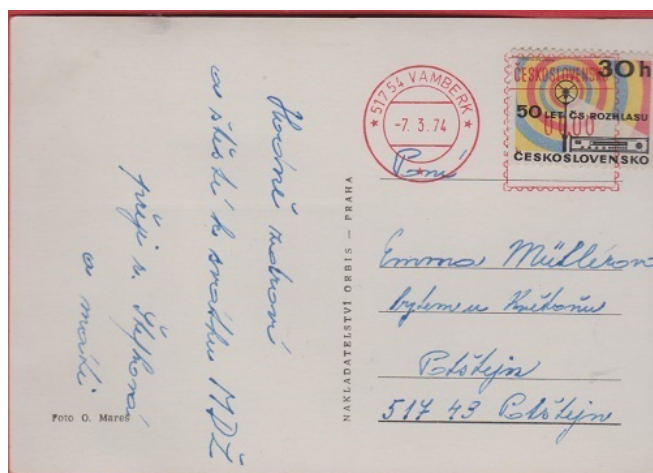 Hodně zdraví
a štěstí k svátku MDŽ
přeji r. Štěpková
a matka
Foto O. Mareš
NAKLADATELSTVÍ ORBIS — PRAHA
★ 51754 VAMBERK ★
-7. 3. 74
ČESKOSLOVENSK
30 h
50 LET ČS. ROZHLASU
0000
ČESKOSLOVENSKO
Paní
Emma Müllerova
bytem u Květoňů
Potštejn
517 43 Potštejn